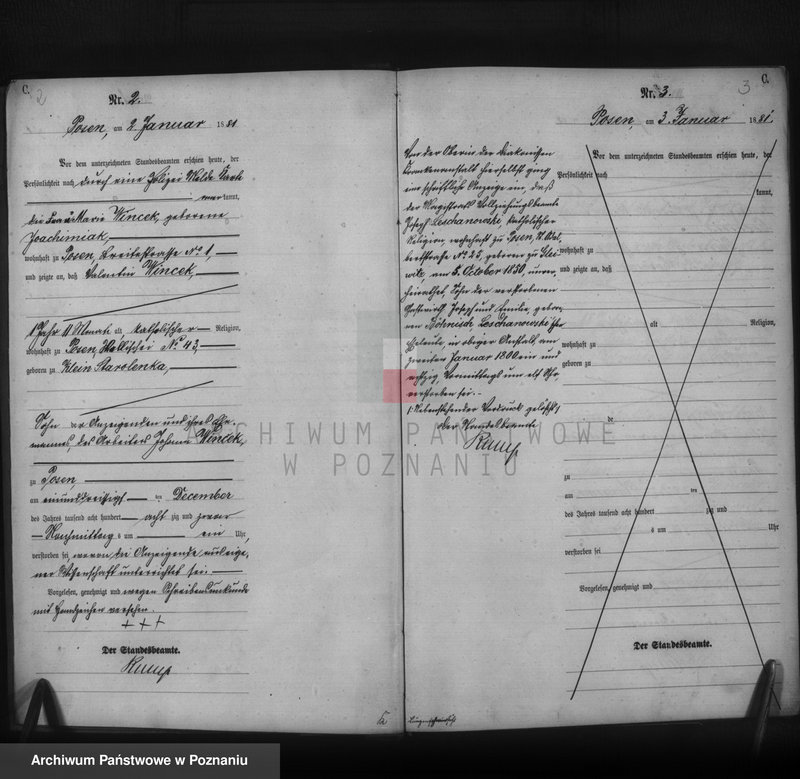 C.
2
Nr. 2.
Posen, am 2. Januar 1881
Vor dem unterzeichneten Standesbeamten erschien heute, der
Persönlichkeit nach durch eine Polizei Melde Karte
kannt,
die Frau Marie Wincek, geborene
Joachimiak,
wohnhaft zu Posen, Breitestrasse No 1,
und zeigte an, daß Valentin Wincek,
1 Jahr 11 Monate alt, katholischer Religion,
wohnhaft zu Posen, Wallischei No 43,
geboren zu Klein Starolenka,
Sohn der Anzeigenden und ihres Ehe-
mannes, des Arbeiters Johann Wincek,
zu Posen,
am einunddreißigsten December
des Jahres tausend acht hundert acht zig und
Nachmittags um ein Uhr,
verstorben sei, wovon die Anzeigende aus eige-
ner Wissenschaft unterrichtet sei.
Vorgelesen, genehmigt und wegen Schreibensunkunde
mit Handzeichen versehen.
+++
Der Standesbeamte.
C.
3
Nr. 3.
Posen, am 3. Januar 1881
Von der Oberin der Diakonissen
Krankenanstalt hierselbst ging
eine schriftliche Anzeige ein, daß
der Magistrats Vollziehungsbeamte
Joseph Leschanowski, katholischer
Religion, wohnhaft zu Posen, St. Adal-
bertstraße No 25, geboren zu Glei-
witz, am 5. October 1850, unver-
heirathet, Sohn der verstorbenen
Joseph und Emilie, gebor-
nen Böhnisch, Leschanowski'schen
Eheleute, in obiger Anstalt, am
zweiten Januar 1800 ein und
achtzig, Vormittags um elf Uhr,
verstorben sei.
Nebenstehender Vordruck gelöscht
Der Standesbeamte
Vor dem unterzeichneten Standesbeamten erschien heute, der
Persönlichkeit nach
kannt,
wohnhaft zu
und zeigte an, daß
alt Religion,
wohnhaft zu
geboren zu
de
zu
am ten
des Jahres tausend acht hundert zig und
s um Uhr
verstorben sei
Vorgelesen, genehmigt und
Der Standesbeamte.
ARCHIWUM PAŃSTWOWE
W POZNANIU
Archiwum Państwowe w Poznaniu